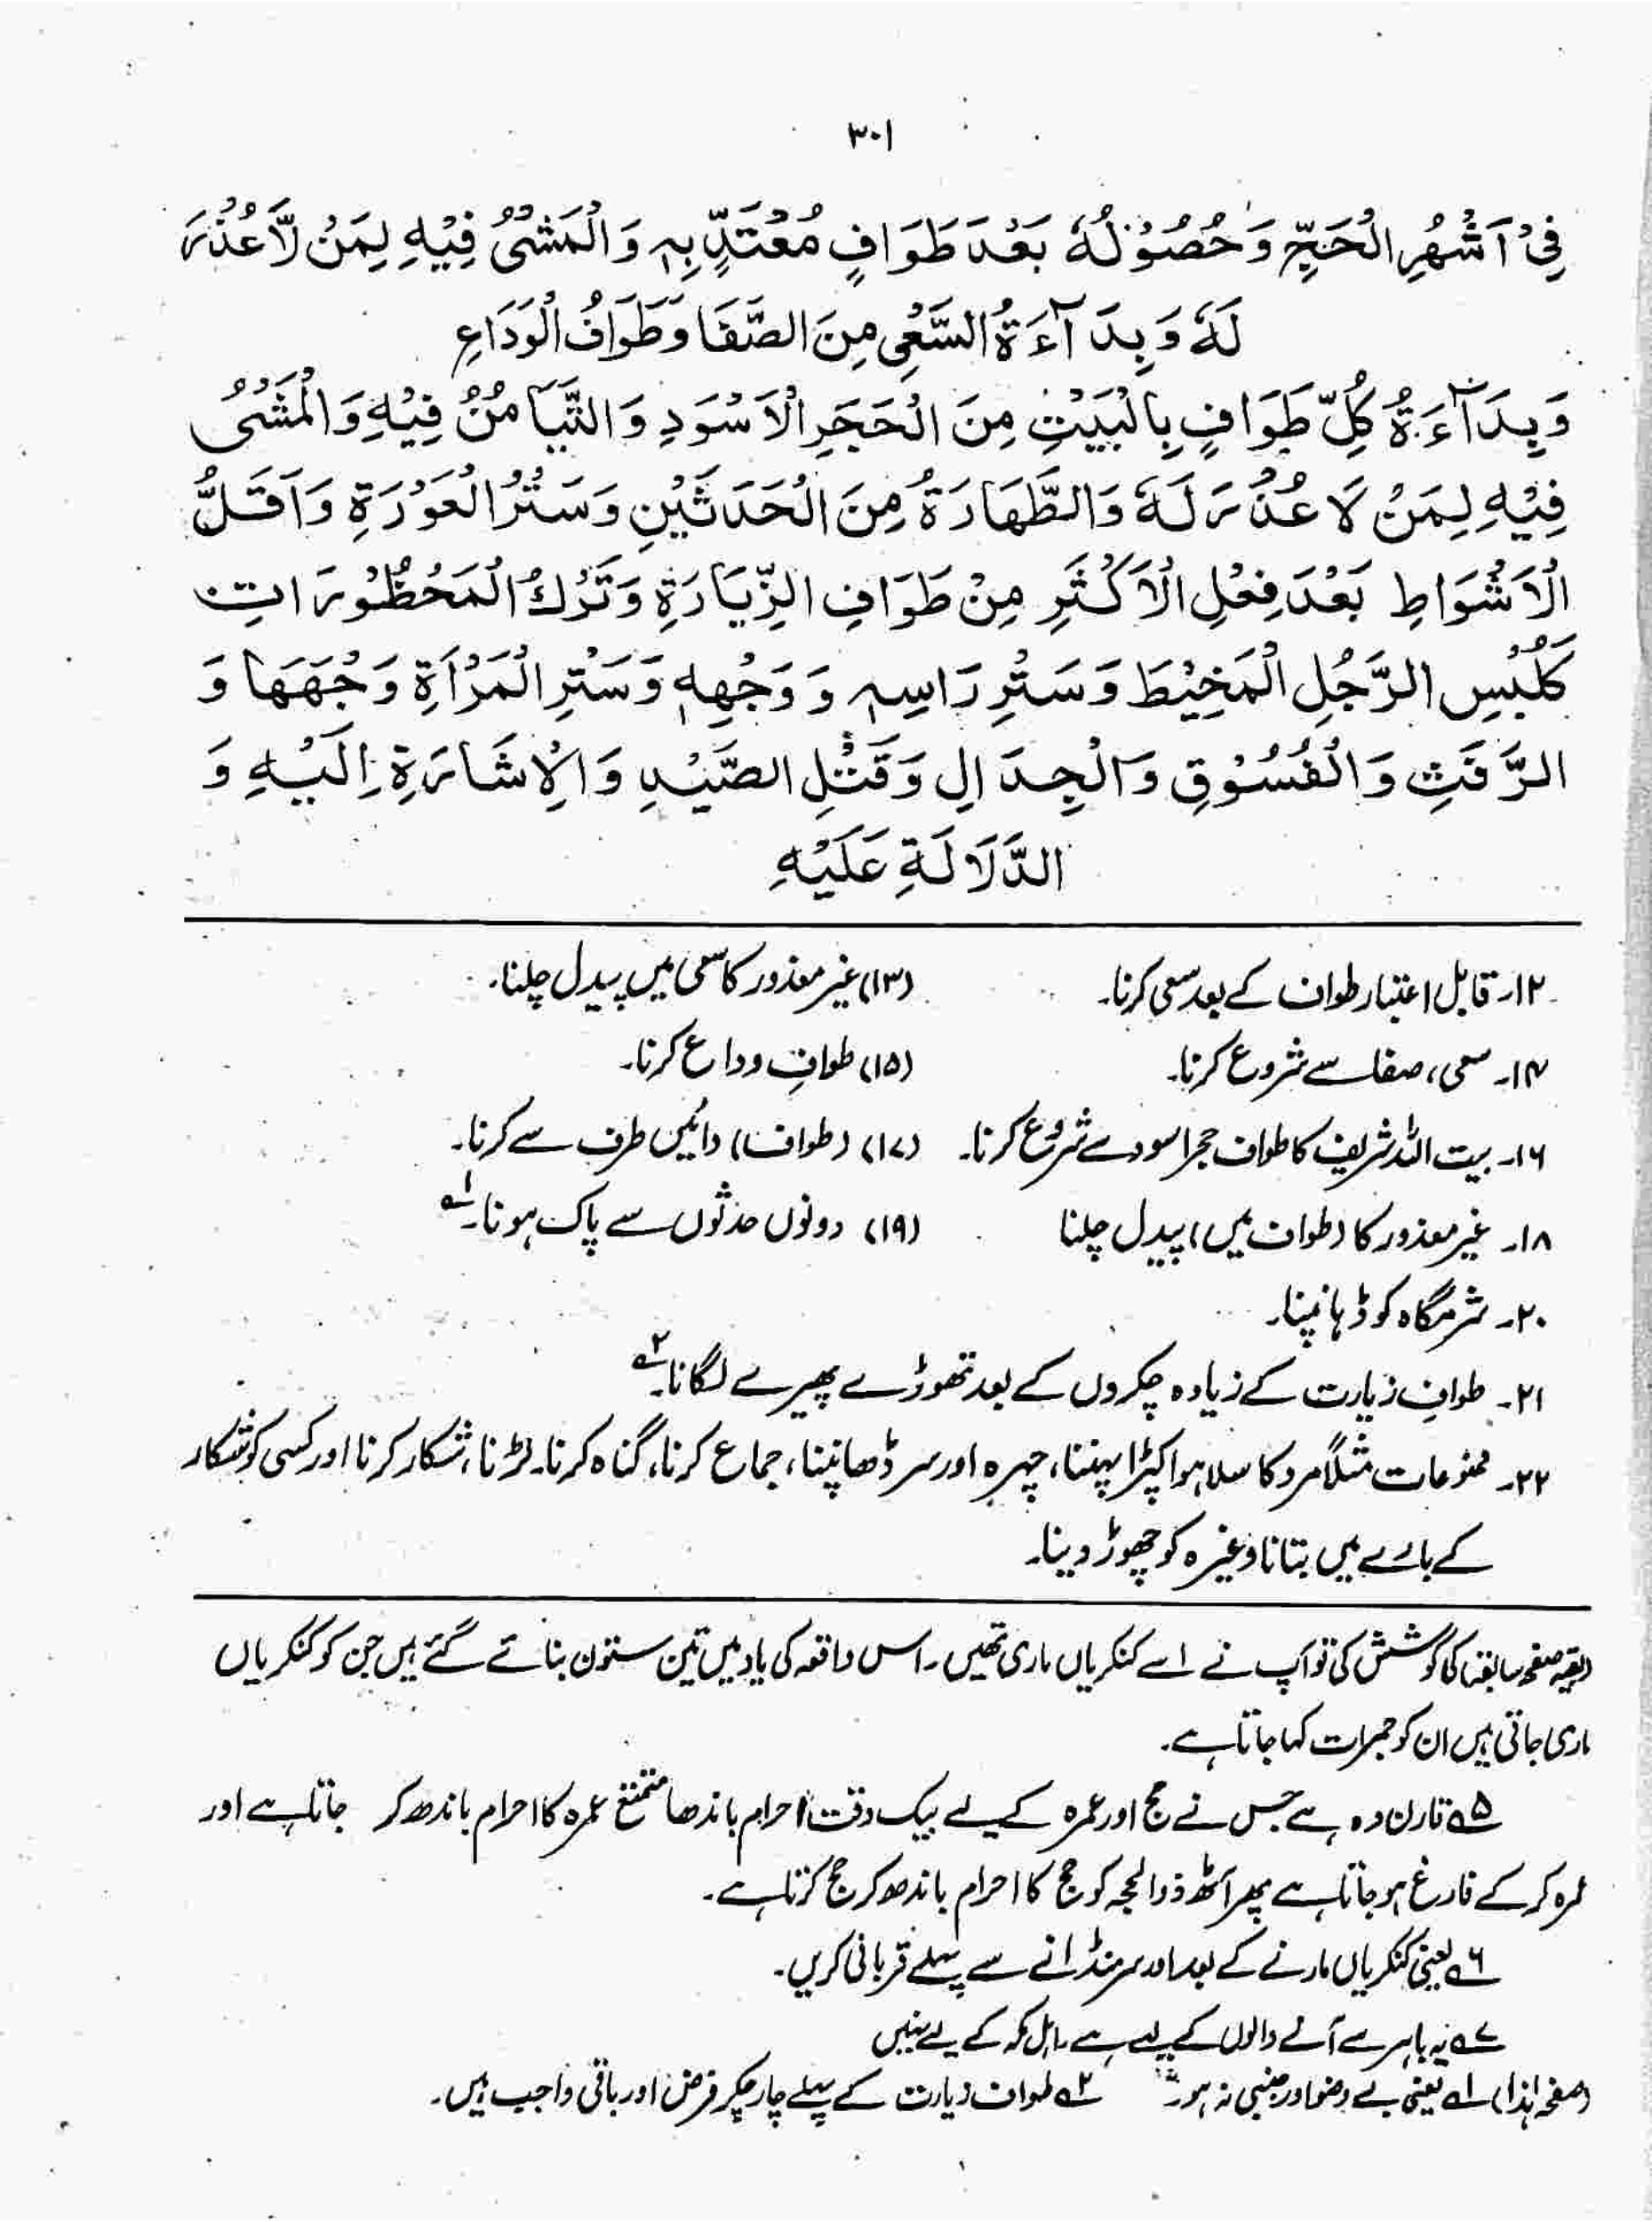 ۳۰۱
فِیْ اَشْهُرِ الْحَجِّ وَحُصُوْلُهٗ بَعْدَ طَوَافٍ مُعْتَدٍّ بِهٖ وَالْمَشْیُ فِیْهِ لِمَنْ لَّاعُذْرَ
لَهٗ وَبِدَآءَةُ السَّعْیِ مِنَ الصَّفَا وَطَوَافُ الْوَدَاعِ
وَبِدَآءَةُ كُلِّ طَوَافٍ بِالْبَیْتِ مِنَ الْحَجَرِ الْاَسْوَدِ وَالتَّیَامُنُ فِیْهِ وَالْمَشْیُ
فِیْهِ لِمَنْ لَاعُذْرَ لَهٗ وَالطَّهَارَةُ مِنَ الْحَدَثَیْنِ وَسَتْرُ الْعَوْرَةِ وَاَقَلُّ
الْاَشْوَاطِ بَعْدَ فِعْلِ الْاَكْثَرِ مِنْ طَوَافِ الزِّیَارَةِ وَتَرْكُ الْمَحْظُوْرَاتِ
كَلُبْسِ الرَّجُلِ الْمَخِیْطَ وَسَتْرِ رَاسِهٖ وَوَجْهِهٖ وَسَتْرِ الْمَرْاَةِ وَجْهَهَا وَ
الرَّفَثِ وَالْفُسُوْقِ وَالْجِدَالِ وَقَتْلِ الصَّیْدِ وَالْاِشَارَةِ اِلَیْهِ وَ
الدَّلَالَةِ عَلَیْهِ
۱۲۔ قابل اعتبار طواف کے بعد سعی کرنا۔ (۱۳) غیر معذور کا سعی میں پیدل چلنا۔
۱۴۔ سعی، صفا سے شروع کرنا۔ (۱۵) طوافِ وداع کرنا۔
۱۶۔ بیت اللہ شریف کا طواف حجر اسود سے شروع کرنا۔ (۱۷) (طواف) دائیں طرف سے کرنا۔
۱۸۔ غیر معذور کا (طواف میں) پیدل چلنا (۱۹) دونوں حدثوں سے پاک ہونا۔ ؂۱
۲۰۔ شرمگاہ کو ڈہانپنا۔
۲۱۔ طوافِ زیارت کے زیادہ چکروں کے بعد تھوڑے پھیرے لگانا۔ ؂۲
۲۲۔ ممنوعات مثلاً مرد کا سلا ہوا کپڑا پہننا، چہرہ اور سر ڈھانپنا، جماع کرنا، گناہ کرنا۔ لڑنا، شکار کرنا اور کسی کو شکار
کے بارے میں بتانا وغیرہ کو چھوڑ دینا۔
(بقیہ صفحہ سابقہ) کی کوشش کی تو آپ نے اسے کنکریاں ماری تھیں۔ اس واقعہ کی یاد میں تین ستون بنائے گئے ہیں جن کو کنکریاں
ماری جاتی ہیں ان کو جمرات کہا جاتا ہے۔
؂۵ قارن وہ ہے جس نے حج اور عمرہ کے لیے بیک وقت احرام باندھا متمتع عمرہ کا احرام باندھ کر جاتا ہے اور
عمرہ کر کے فارغ ہو جاتا ہے پھر آٹھ ذوالحجہ کو حج کا احرام باندھ کر حج کرتا ہے۔
؂۶ یعنی کنکریاں مارنے کے بعد اور سر منڈانے سے پہلے قربانی کریں۔
؂۷ یہ باہر سے آنے والوں کے لیے ہے۔ اہل مکہ کے لیے نہیں
(صفحہ ہذا) ؂۱ یعنی بے وضو اور جنبی نہ ہو۔ ؂۲ طواف زیارت کے پہلے چار چکر فرض اور باقی واجب ہیں۔